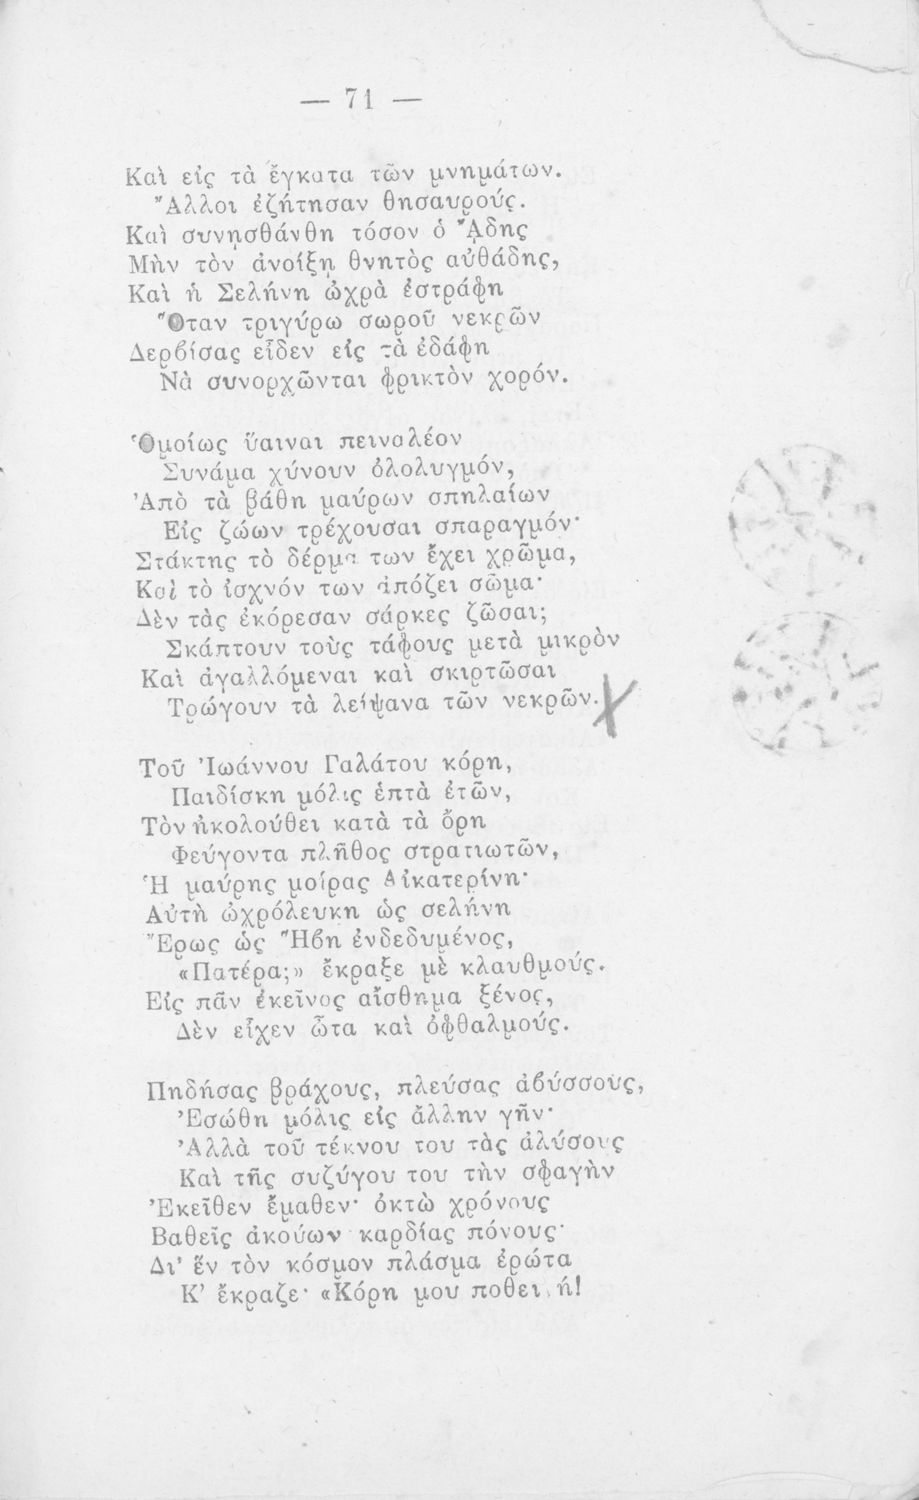 — 71 —
Καὶ εἰς τὰ ἔγκατα τῶν μνημάτων.
Ἄλλοι ἐζήτησαν θησαυρούς.
Καὶ συνῃσθάνθη τόσον ὁ ᾍδης
Μὴν τὸν ἀνοίξῃ θνητὸς αὐθάδης,
Καὶ ἡ Σελήνη ὠχρὰ ἐστράφη
Ὅταν τριγύρω σωροῦ νεκρῶν
Δερβίσας εἶδεν εἰς τὰ ἐδάφη
Νὰ συνορχῶνται φρικτὸν χορόν.
Ὁμοίως ὕαιναι πειναλέον
Συνάμα χύνουν ὀλολυγμόν,
Ἀπὸ τὰ βάθη μαύρων σπηλαίων
Εἰς ζώων τρέχουσαι σπαραγμόν·
Στάκτης τὸ δέρμα των ἔχει χρῶμα,
Καὶ τὸ ἰσχνόν των ἀπόζει σῶμα·
Δὲν τὰς ἐκόρεσαν σάρκες ζῶσαι;
Σκάπτουν τοὺς τάφους μετὰ μικρὸν
Καὶ ἀγαλλόμεναι καὶ σκιρτῶσαι
Τρώγουν τὰ λείψανα τῶν νεκρῶν.
Τοῦ Ἰωάννου Γαλάτου κόρη,
Παιδίσκη μόλις ἑπτὰ ἐτῶν,
Τὸν ἠκολούθει κατὰ τὰ ὄρη
Φεύγοντα πλῆθος στρατιωτῶν,
Ἡ μαύρης μοίρας Αἰκατερίνη·
Αὐτὴ ὠχρόλευκη ὡς σελήνη
Ἔρως ὡς Ἥβη ἐνδεδυμένος,
«Πατέρα;» ἔκραξε μὲ κλαυθμούς.
Εἰς πᾶν ἐκεῖνος αἴσθημα ξένος,
Δὲν εἶχεν ὦτα καὶ ὀφθαλμούς.
Πηδήσας βράχους, πλεύσας ἀβύσσους,
Ἐσώθη μόλις εἰς ἄλλην γῆν·
Ἀλλὰ τοῦ τέκνου του τὰς ἁλύσους
Καὶ τῆς συζύγου του τὴν σφαγὴν
Ἐκεῖθεν ἔμαθεν· ὀκτὼ χρόνους
Βαθεῖς ἀκούων καρδίας πόνους·
Δι' ἓν τὸν κόσμον πλάσμα ἐρώτα
Κ' ἔκραζε· «Κόρη μου ποθεινή!